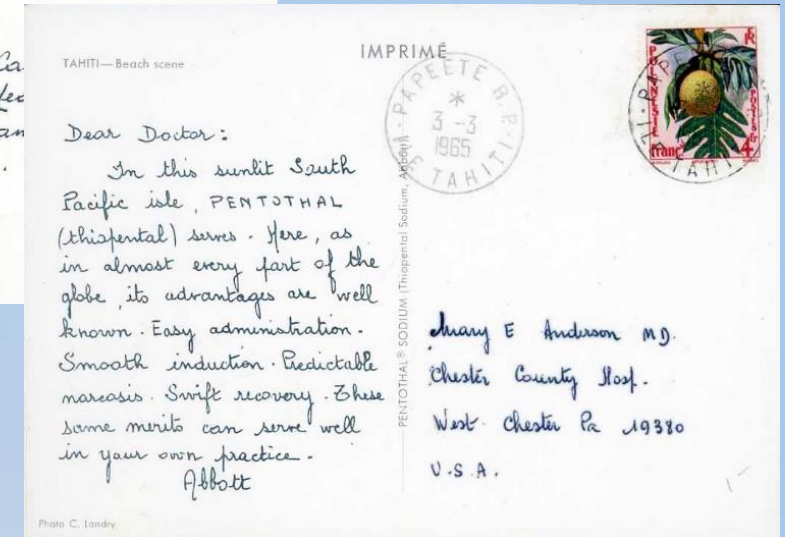 TAHITI—Beach scene
IMPRIMÉ
PAPEETE R.P.
*
3 -3
1965
ILE TAHITI
POLYNESIE
RF
POSTES
4F
Dear Doctor:
In this sunlit South
Pacific isle, PENTOTHAL
(thiopental) serves. Here, as
in almost every part of the
globe, its advantages are well
known. Easy administration.
Smooth induction. Predictable
narcosis. Swift recovery. These
same merits can serve well
in your own practice.
Abbott
PENTOTHAL® SODIUM (Thiopental Sodium, Abbott)
Mary E Anderson MD.
Chester County Hosp.
West Chester Pa 19380
U.S.A.
Photo C. Landry